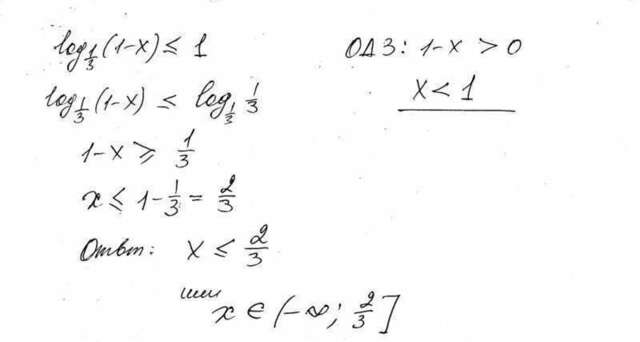 log_{1/3}(1-x) ≤ 1
ОДЗ: 1-x > 0
x < 1
log_{1/3}(1-x) ≤ log_{1/3} 1/3
1-x ≥ 1/3
x ≤ 1 - 1/3 = 2/3
Ответ: x ≤ 2/3
или
x ∈ (-∞; 2/3]